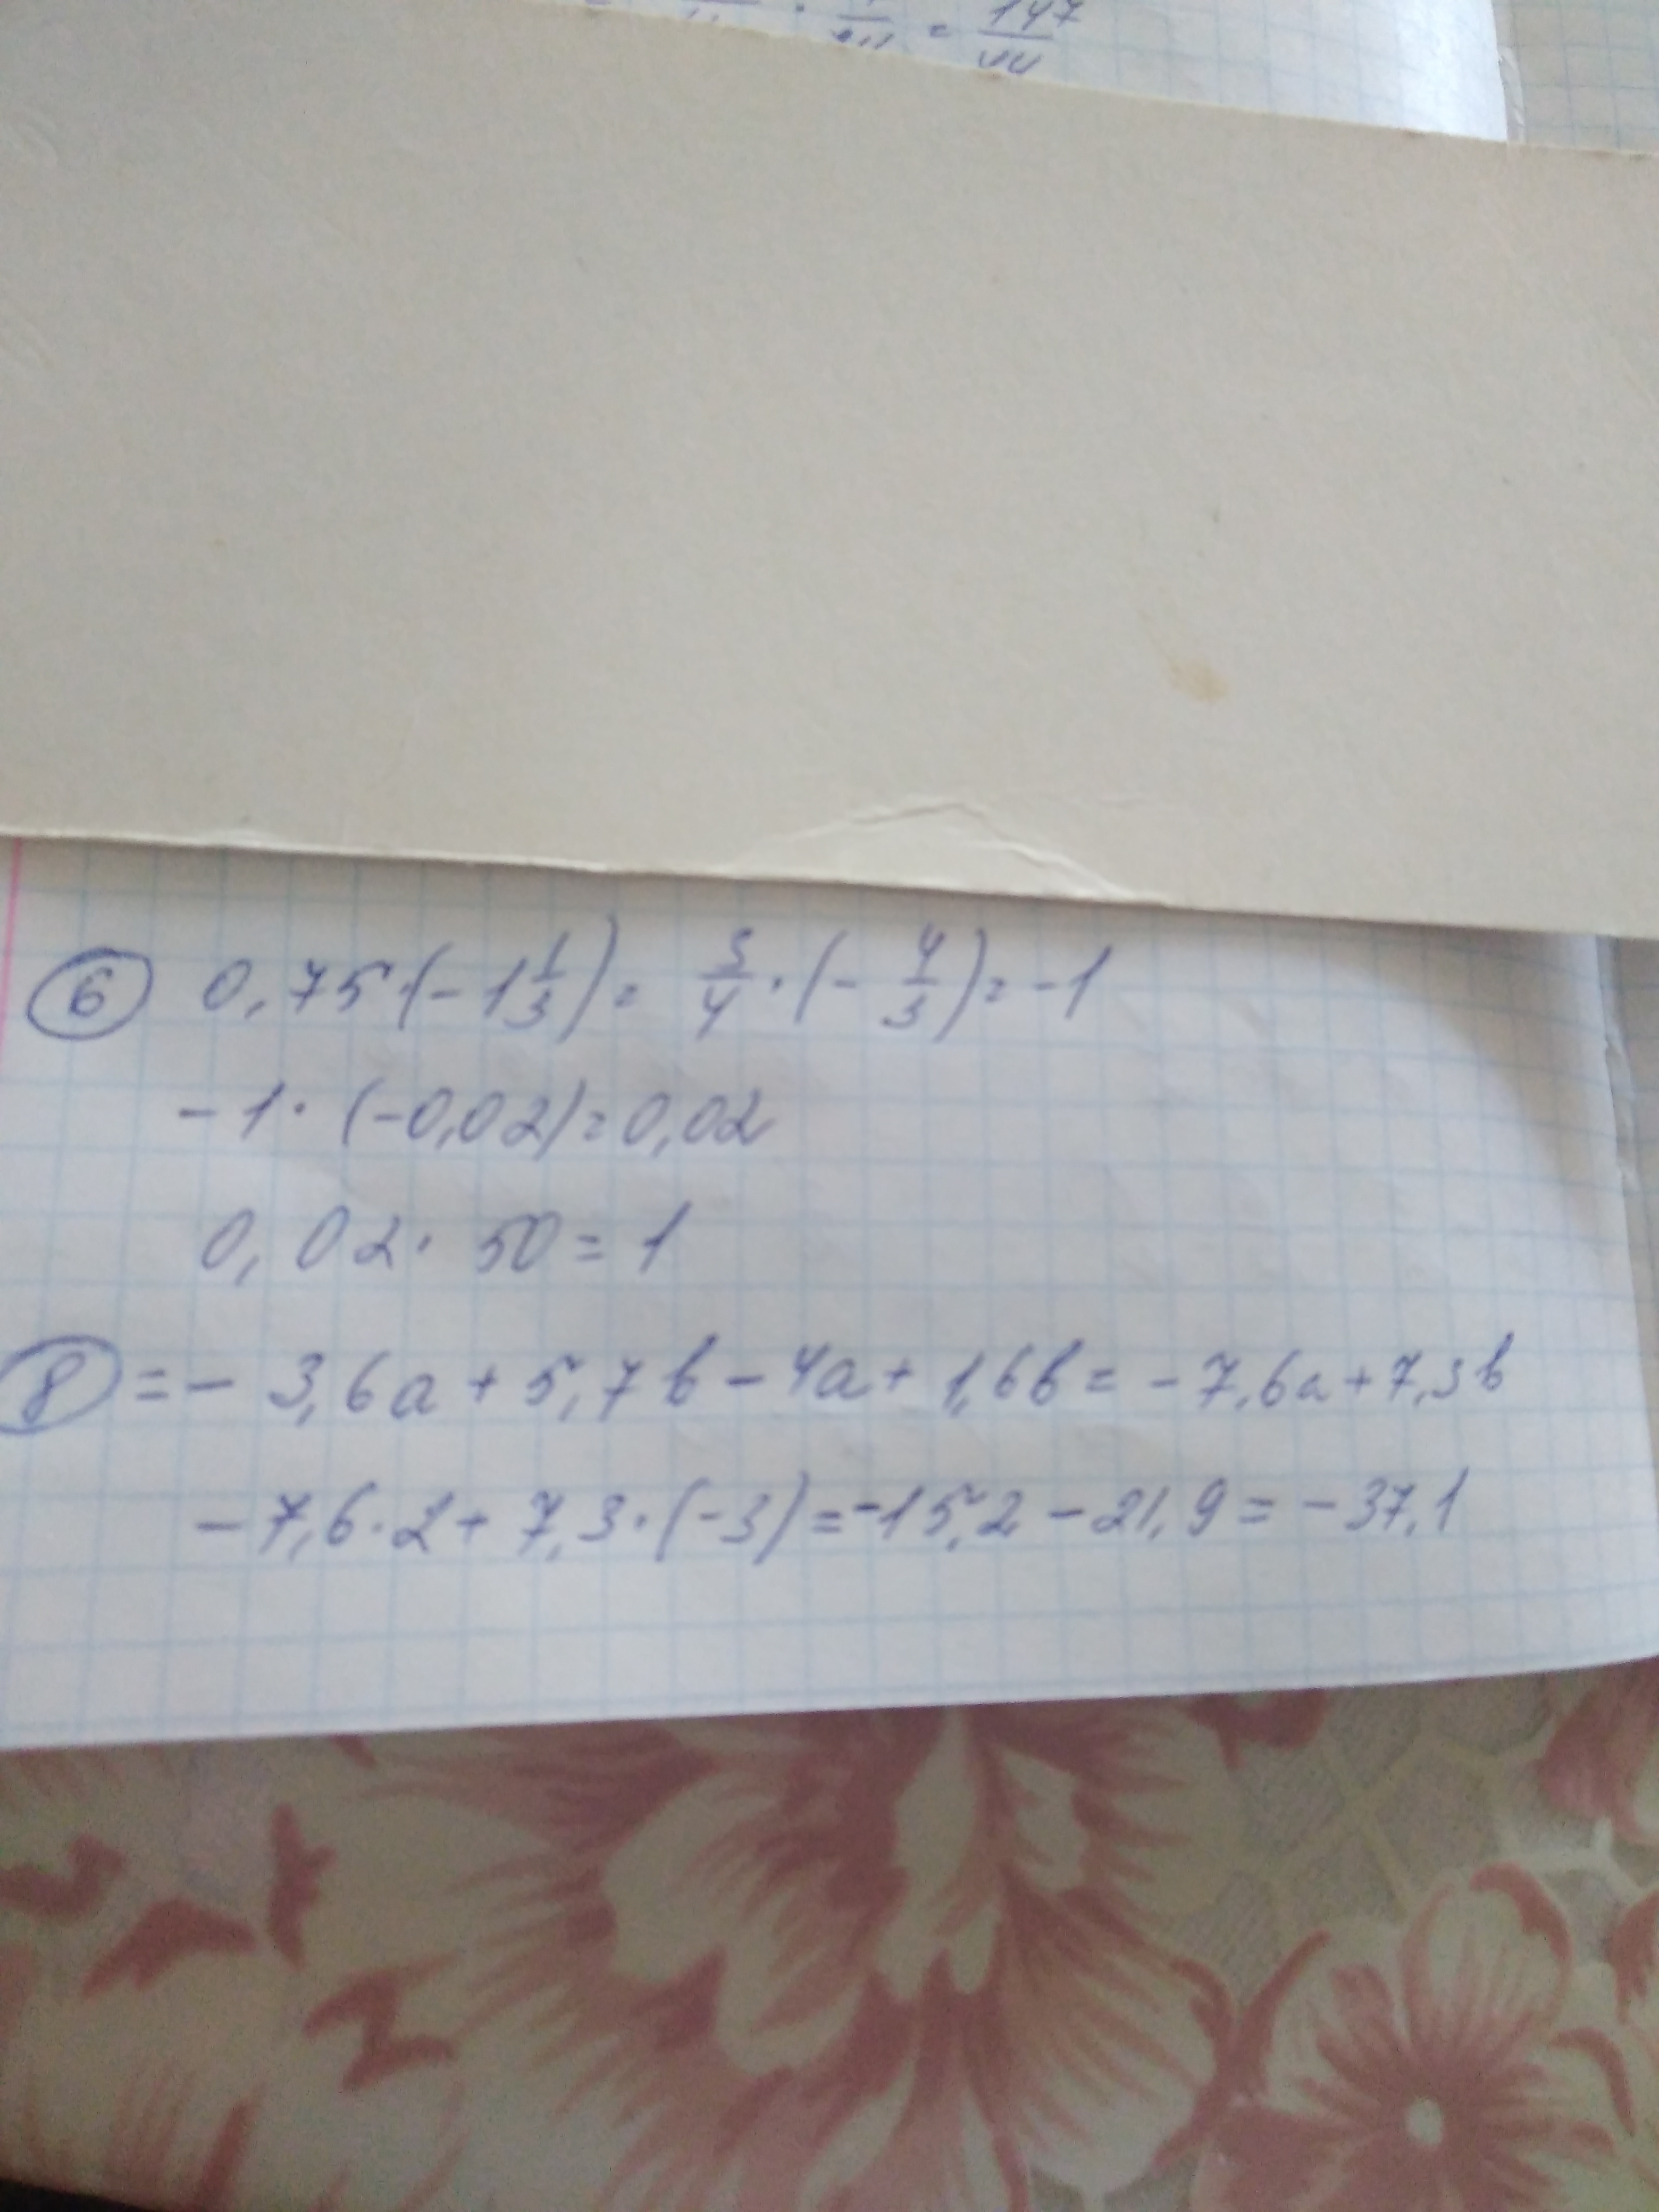 = 147/44
6 0,75·(-1 1/3) = 3/4 · (- 4/3) = -1
-1 · (-0,02) = 0,02
0,02 · 50 = 1
8 = - 3,6a + 5,7b - 4a + 1,6b = - 7,6a + 7,3b
- 7,6 · 2 + 7,3 · (-3) = -15,2 - 21,9 = - 37,1